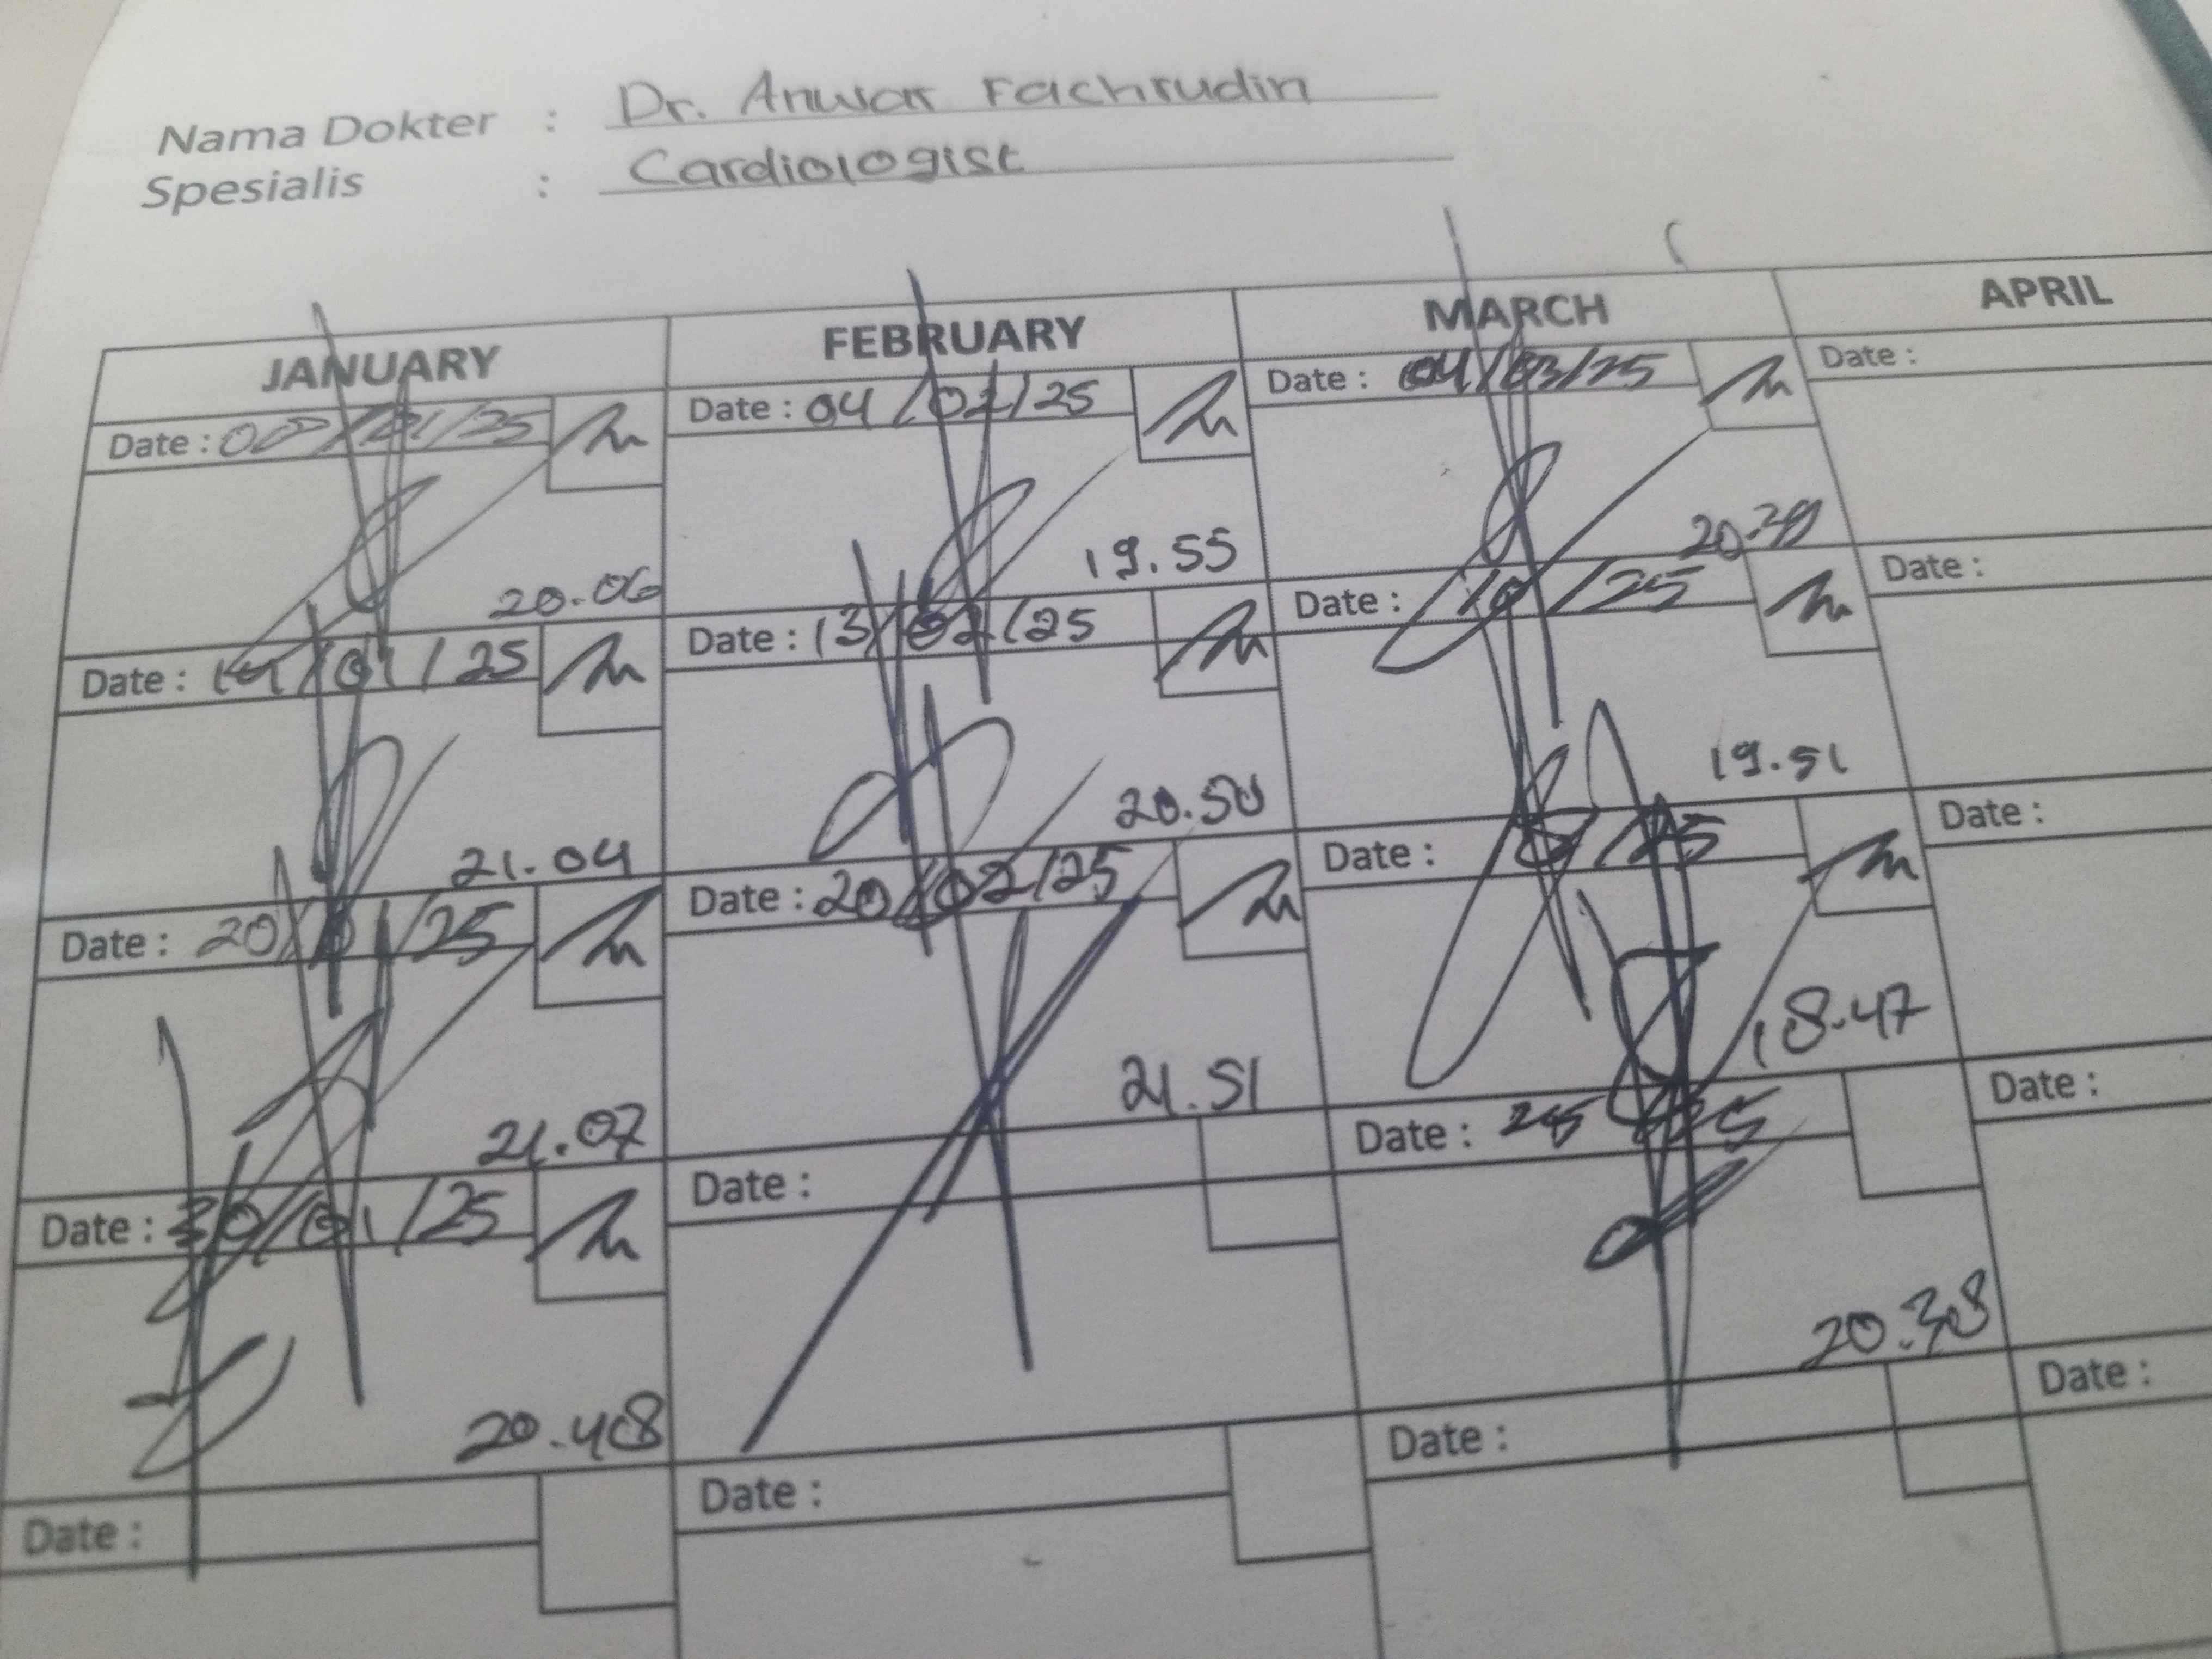 Nama Dokter : Dr. Anwar Fachrudin
Spesialis : Cardiologist
JANUARY FEBRUARY MARCH APRIL
Date : /01/25 Date : 04/02/25 Date : 04/03/25 Date :
20.06 19.55
Date : 14/01/25 Date : 13/02/25 Date : /25 Date :
21.04 20.50 19.51
Date : 20/ /25 Date : 20/02/25 Date : /25 Date :
21.07 21.51 18.47
Date : 30/01/25 Date : Date : Date :
20.48 20.38
Date : Date : Date : Date :